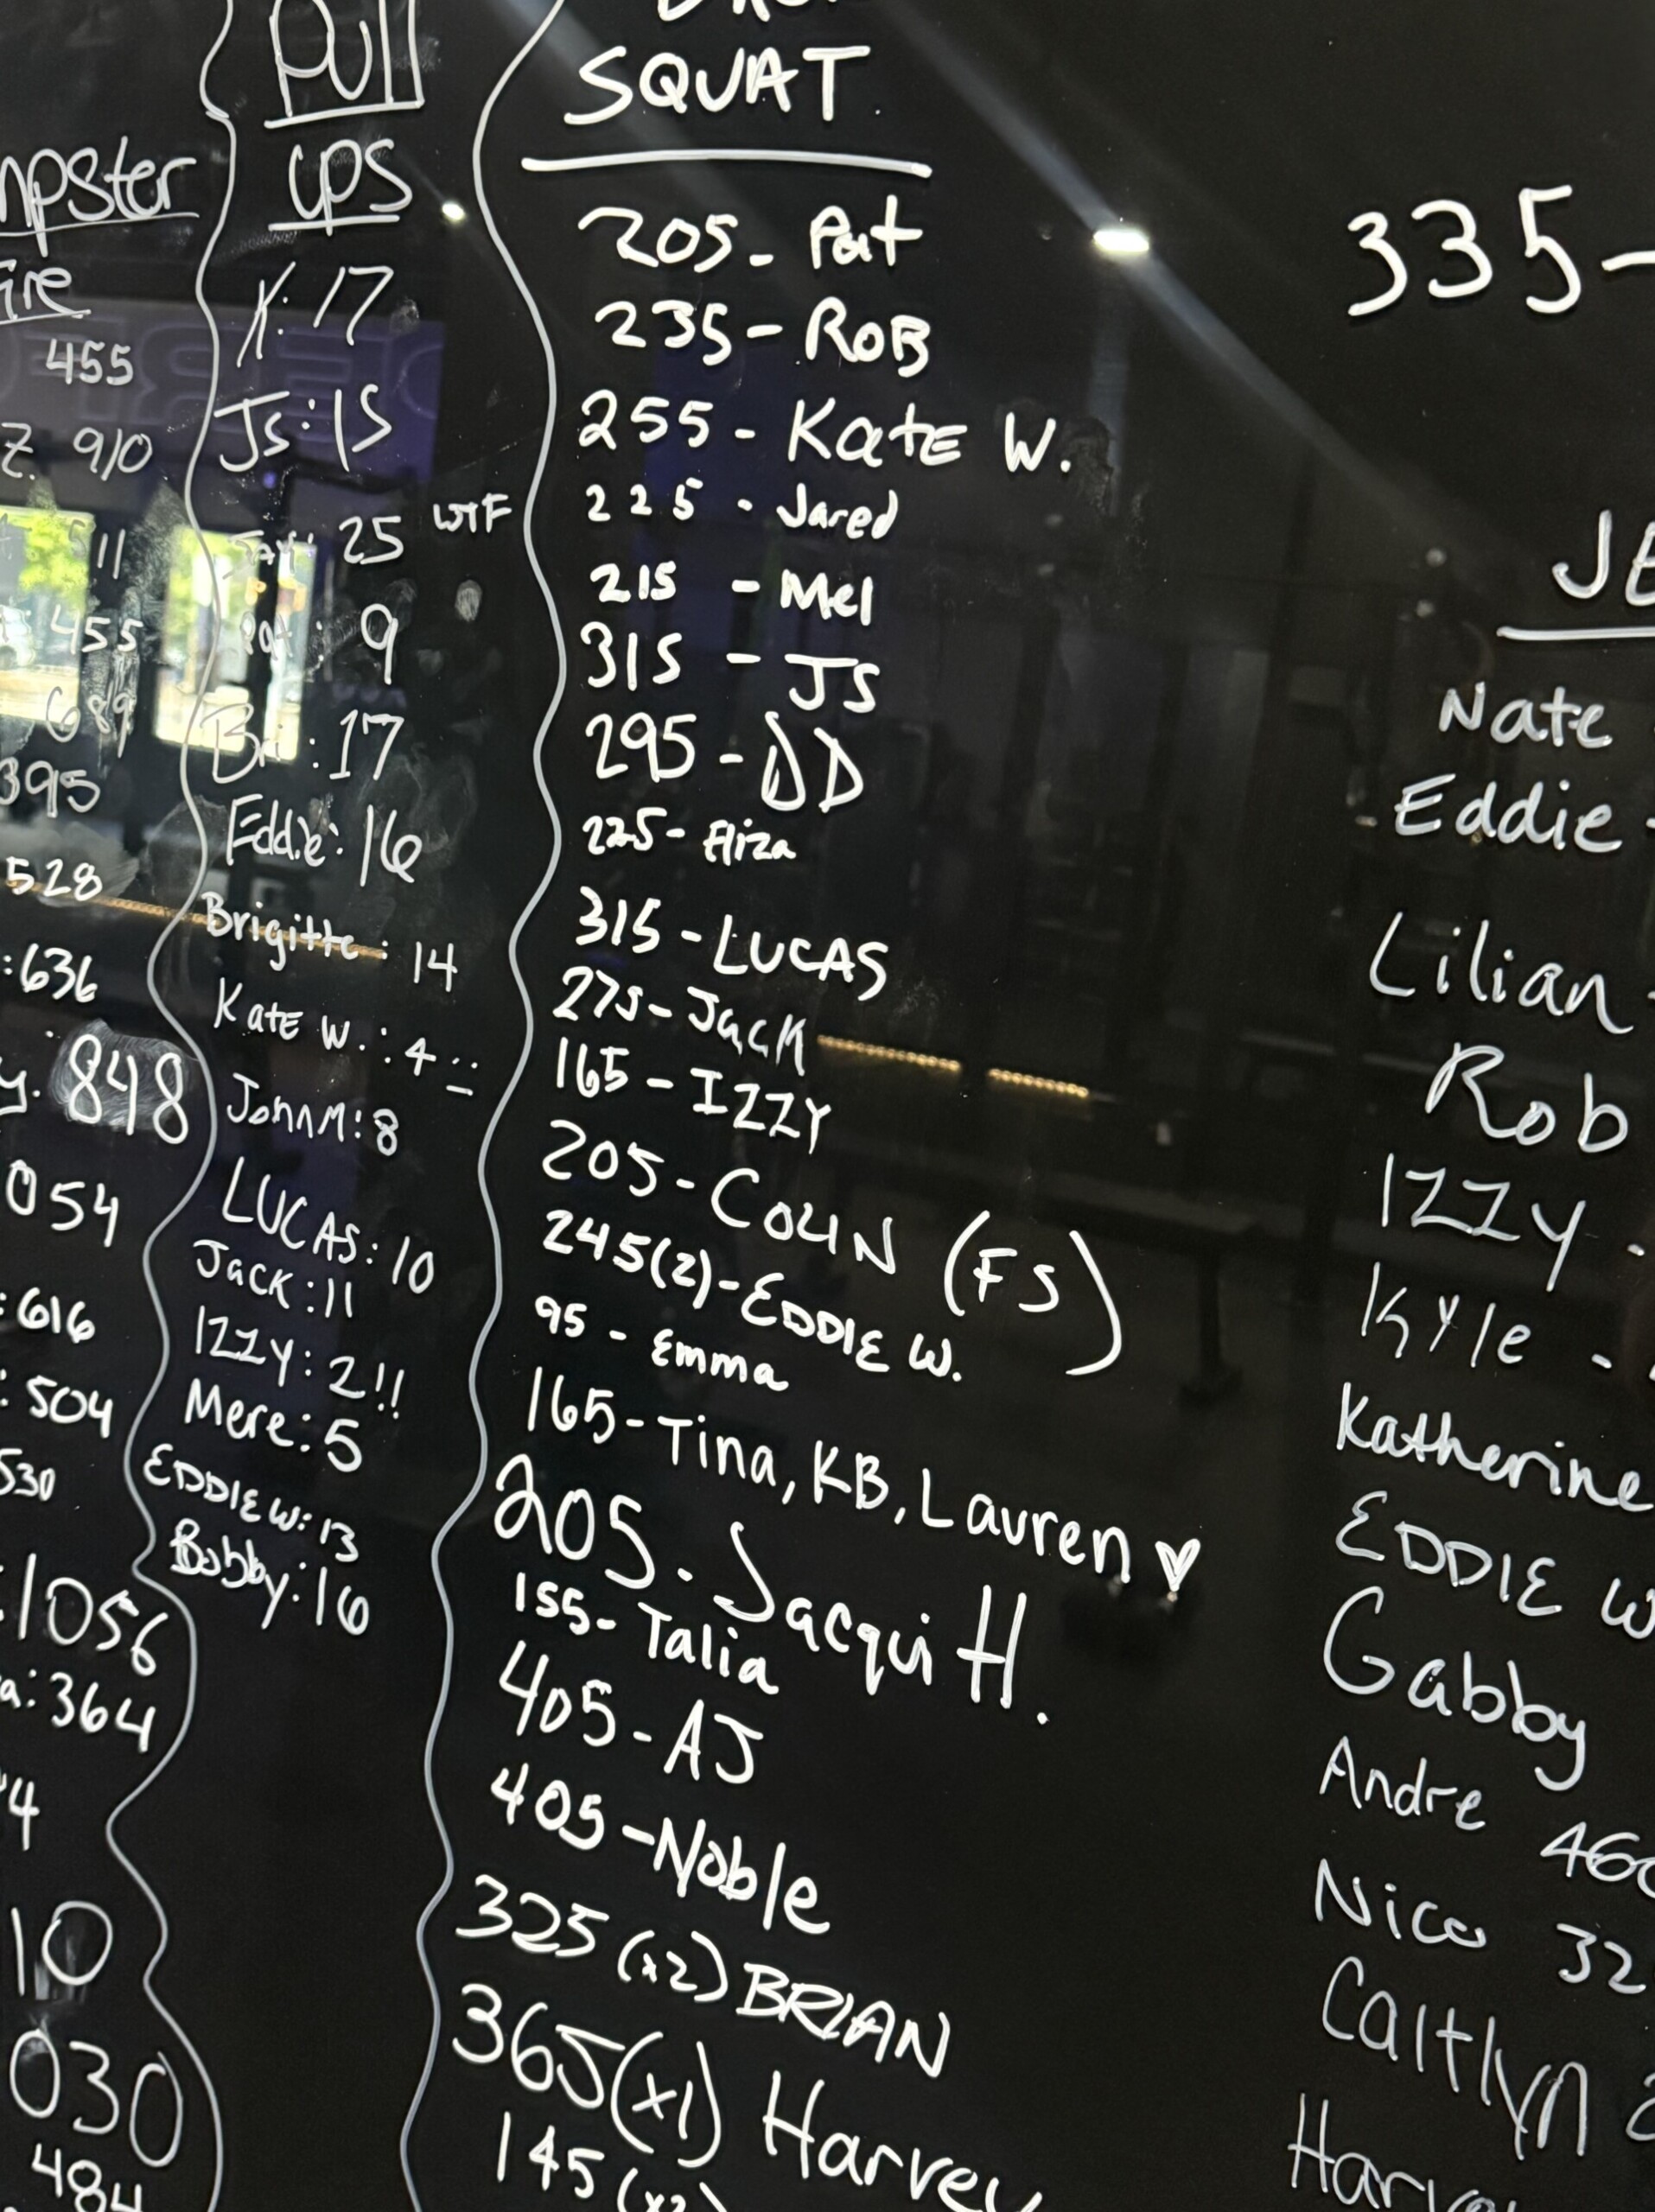 455
9/0
11
455
689
395
528
:636
848
054
:616
:504
530
:1056
a:364
4
10
030
484
Pull
UPS
K: 17
JS: 15
25 WTF
Pat: 9
Bri: 17
Eddie: 16
Brigitte: 14
Kate W.: 4
JohnM: 8
LUCAS: 10
Jack: 11
IZZY: 2!!
Mere: 5
EDDIE W: 13
Bobby: 16
SQUAT
205- Pat
235- ROB
255- KatE W.
225 - Jared
215 - Mel
315 - JS
295 - DD
225- Eliza
315 - LUCAS
275- Jack
165 - IZZY
205- COLIN (FS)
245(2)-EDDIE W.
95 - Emma
165-Tina, KB, Lauren ♥
205. Jacqui H.
155- Talia
405- AJ
405 -Noble
325 (x2) BRIAN
365(x1) Harvey
145
335-
Nate
Eddie -
Lilian -
Rob
IZZY -
Kyle -
Katherine
EDDIE W
Gabby
Andre 46
Nico 32
Caitlyn